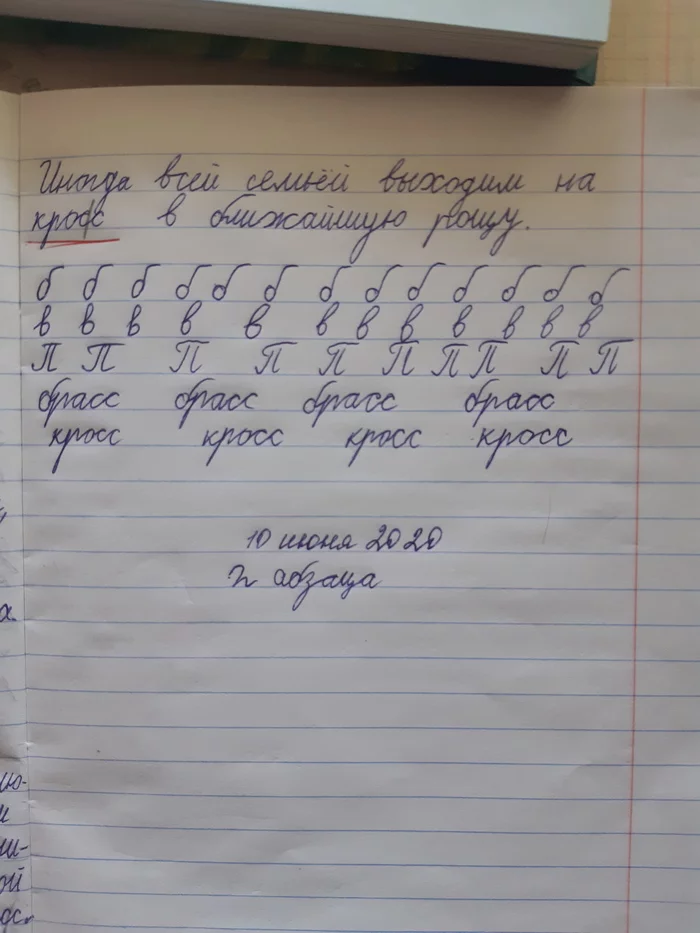 Иногда всей семьёй выходим на
кросс в ближайшую рощу.
б б б б б б б б б б б б б
в в в в в в в в в в в в
П П П П П П П П П П
брасс брасс брасс брасс
кросс кросс кросс кросс
10 июня 2020
2 абзаца